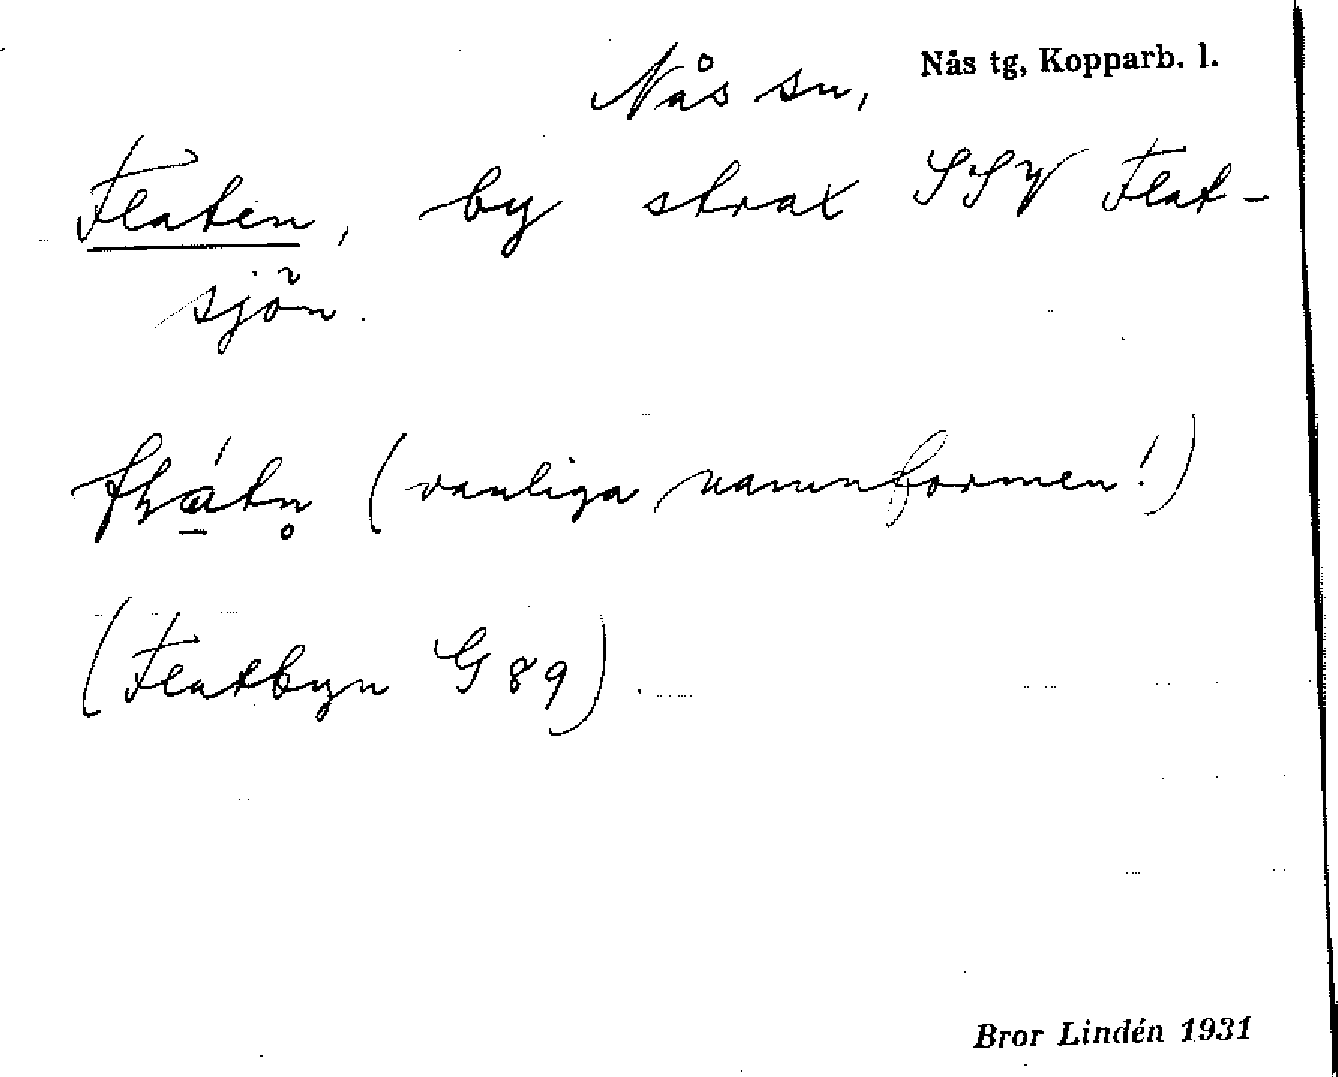 Nås sn, Nås tg, Kopparb. l.
Flaten, by strax SSV Flat-
sjön.
(vanliga namnformen!)
(Flatbyn G 89).
Bror Lindén 1931